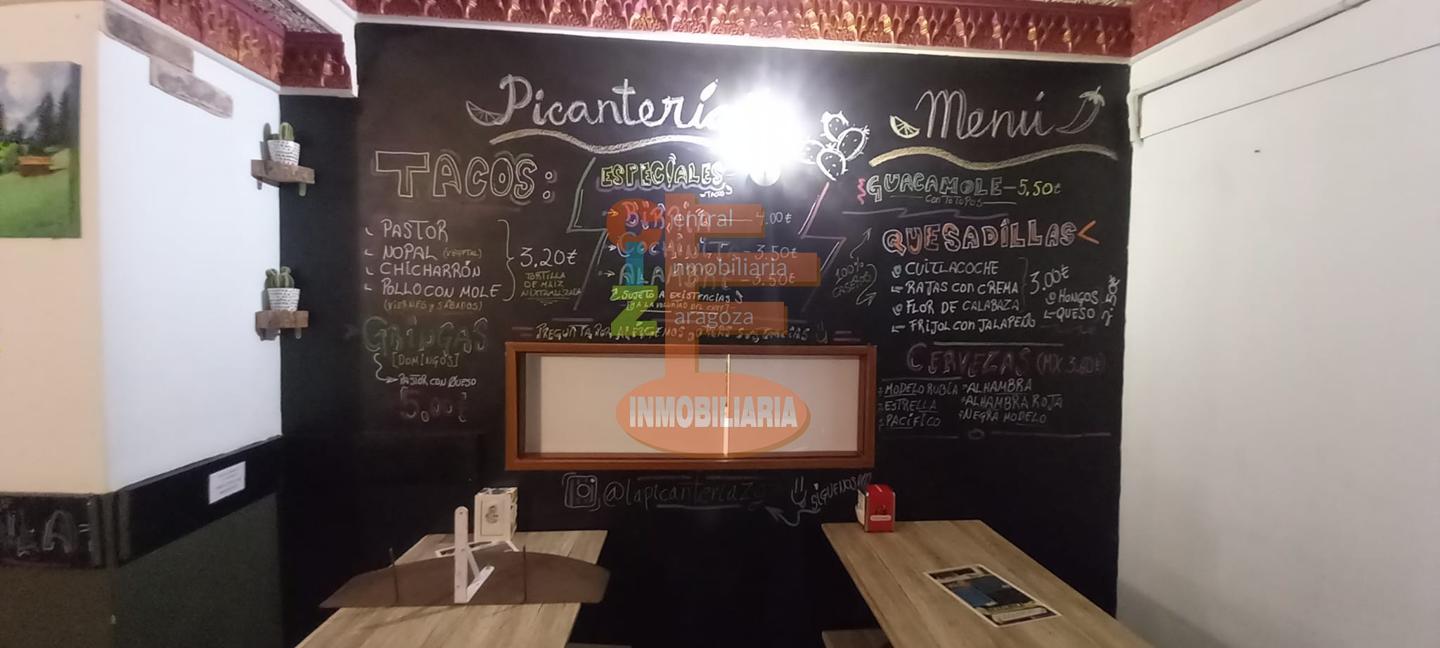 Picantería
Menú
TACOS:
PASTOR
NOPAL (VEGETAL)
CHICHARRÓN
POLLO CON MOLE
(VIERNES y SÁBADOS)
3,20€
TORTILLA
DE MAIZ
NIXTAMALIZADA
GRINGAS
[DOMINGOS]
PASTOR CON QUESO
5,00€
ESPECIALES
TACOS
BIRRIA — 4.00€
COCHINITA — 3.50€
ALAMBRE — 3.50€
SUJETO A EXISTENCIAS
PREGUNTA POR ALÉRGENOS
GRACIAS
100%
CASERO
GUACAMOLE — 5,50€
CON TOTOPOS
QUESADILLAS
CUITLACOCHE
RAJAS CON CREMA
FLOR DE CALABAZA
FRIJOL CON JALAPEÑO
3.00€
HONGOS
QUESO
CERVEZAS (MX 3.60€)
MODELO RUBIA
ESTRELLA
PACÍFICO
ALHAMBRA
ALHAMBRA ROJA
NEGRA MODELO
@lapicanteriazg
SÍGUENOS
entral
inmobiliaria
aragoza
INMOBILIARIA